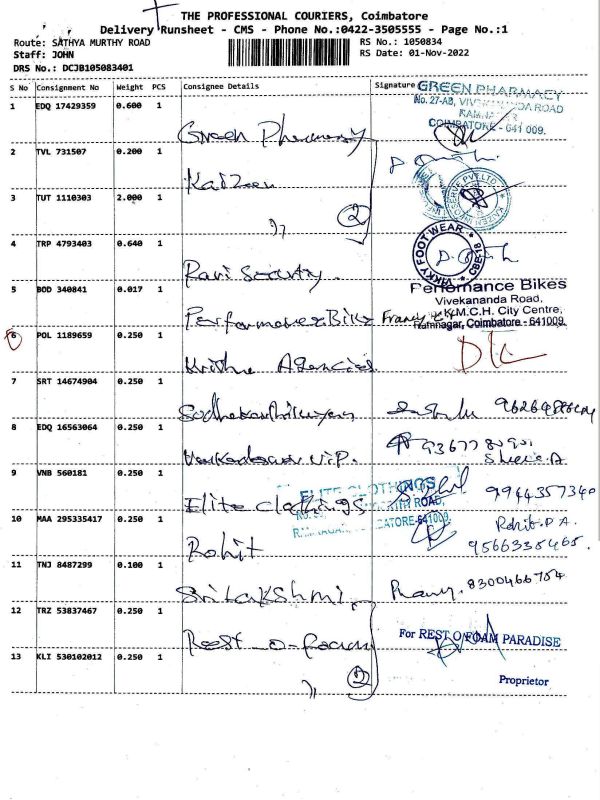 THE PROFESSIONAL COURIERS, Coimbatore
Delivery Runsheet - CMS - Phone No.:0422-3505555 - Page No.:1
Route: SATHYA MURTHY ROAD
RS No.: 1050834
Staff: JOHN
RS Date: 01-Nov-2022
DRS No.: DCJB105083401
S No Consignment No Weight PCS Consignee Details Signature
GREEN PHARMACY
No. 27-AB, VIVEKANANDA ROAD
RAMNAGAR
COIMBATORE - 641 009.
1 EDQ 17429359 0.600 1 Green Pharmacy
2 TVL 731507 0.200 1 Kaizen
3 TUT 1110303 2.000 1 〃 2
VAKKY FOOTWEAR CBE-18
4 TRP 4793403 0.640 1 Ravi Security
Performance Bikes
Vivekananda Road,
K.M.C.H. City Centre,
Ramnagar, Coimbatore - 641009.
5 BOD 340841 0.017 1 Performance Bike
6 POL 1189659 0.250 1 Krithu Agencies
7 SRT 14674904 0.250 1
8 EDQ 16563064 0.250 1 V.P.
9 VNB 560181 0.250 1 Elite Clothings 9944357340
ELITE CLOTHINGS
10 MAA 295335417 0.250 1 Rohit Rohit.P A.
9566335465.
11 TNJ 8487299 0.100 1 Sri Lakshmi. 8300466754
12 TRZ 53837467 0.250 1 Rest - o - foam
For REST O FOAM PARADISE
13 KLI 530102012 0.250 1 〃 2
Proprietor